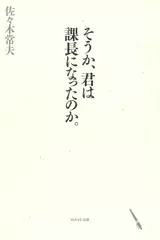 佐々木常夫
そうか、君は
課長になったのか。
WAVE出版